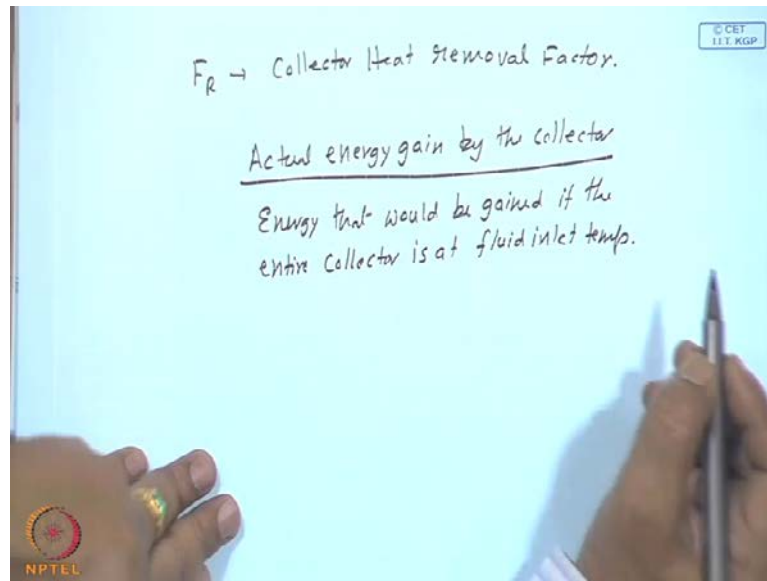 © CET
I.I.T. KGP
F_R → Collector Heat removal Factor.
Actual energy gain by the collector
Energy that would be gained if the
entire collector is at fluid inlet temp.
NPTEL